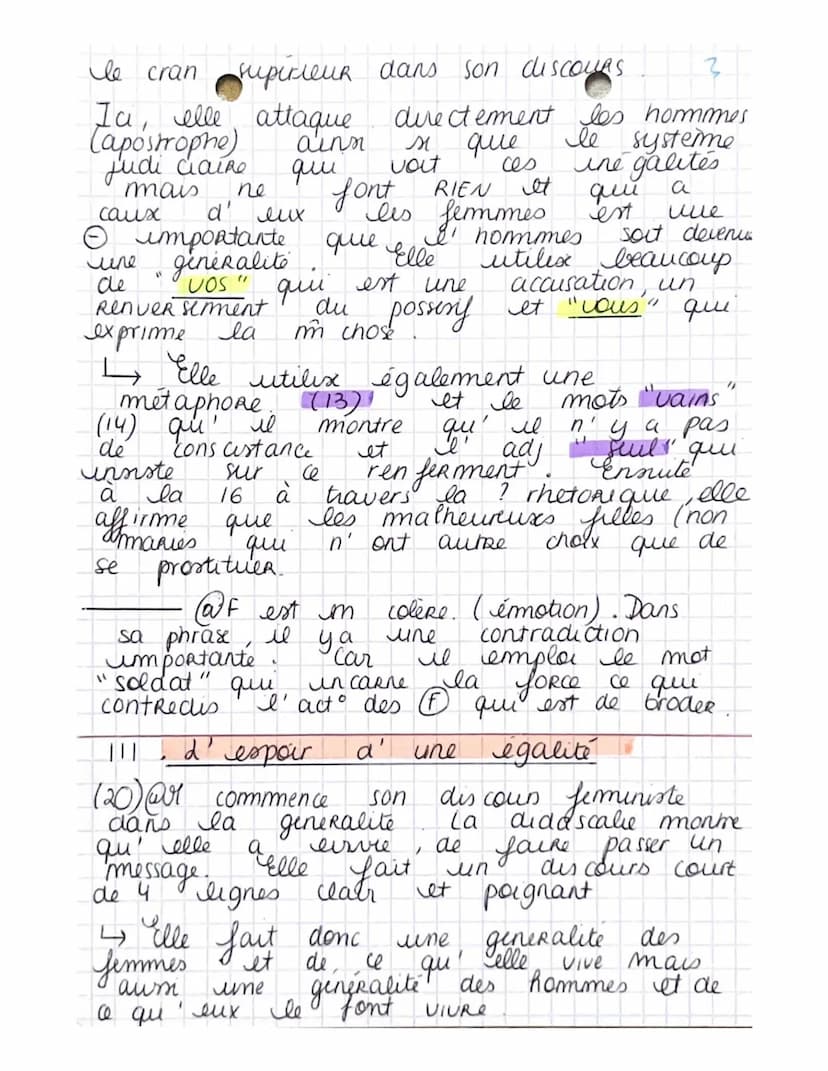 le cran supérieur dans son discours. 3
Ici, elle attaque directement les hommmes
(apostrophe) ainsi si que le système
judiciaire qui voit ces inégalités
mais ne font RIEN et qui a
caux d'eux les femmmes est vue
⊖ importante que l'hommmes soit devenu
une généralité. Elle utilise beaucoup
de "vos" qui est une accusation, un
renversement du possessif et "vous" qui
exprime la mm̂ chose.
↳ Elle utilise également une
métaphore (13) et le mots "vains"
(14) qu'il montre qu'il n'y a pas
de consistance et l'adj "seul" qui
insiste sur ce renferment. Ensuite
à la 16 à travers la ? rhétorique, elle
affirme que les malheureuses filles (non
mariés qui n'ont autre choix que de
se prostituer.
@F est en colère. (émotion). Dans
sa phrase, il y a une contradiction
importante. Car il emploi le mot
"soldat" qui incarne la force ce qui
contredis l'act° des Ⓕ qui est de broder.
III. d'espoir d'une égalité
(20) commence son discours féministe
dans la généralité. La didascalie montre
qu'elle a envie, de faire passer un
message. Elle fait un discours court
de 4 lignes clair et poignant
↳ Elle fait donc une généralité des
femmes et de ce qu'elle vive mais
aussi une généralité des hommes et de
ce qu'eux le font vivre.